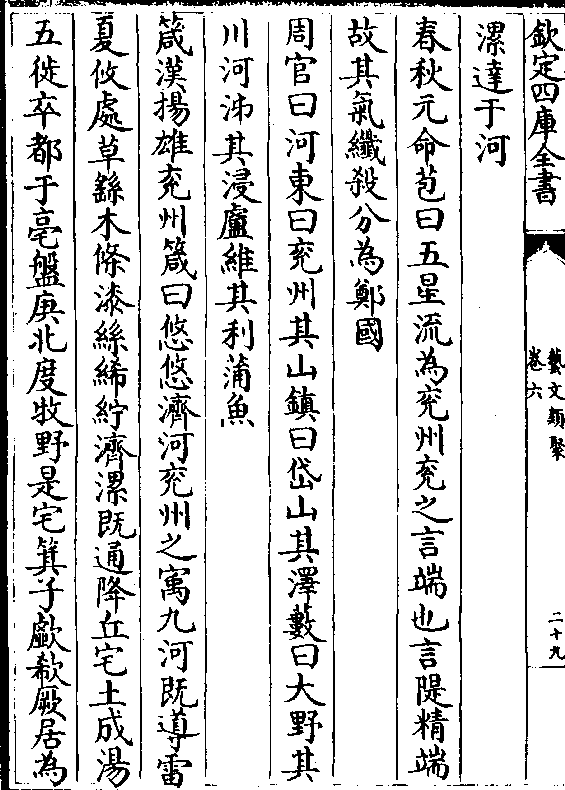 欽定四庫全書
藝文類聚
卷六
二十九
漯達于河
春秋元命苞曰五星流為兖州兖之言端也言隄精端
故其氣纖殺分為鄭國
周官曰河東曰兖州其山鎮曰岱山其澤藪曰大野其
川河泲其浸廬維其利蒲魚
箴漢揚雄兖州箴曰悠悠濟河兖州之㝢九河既導雷
夏攸處草繇木條漆絲絺紵濟漯既通降丘宅土成湯
五徙卒都于亳盤庚北度牧野是宅箕子歔欷厥居為